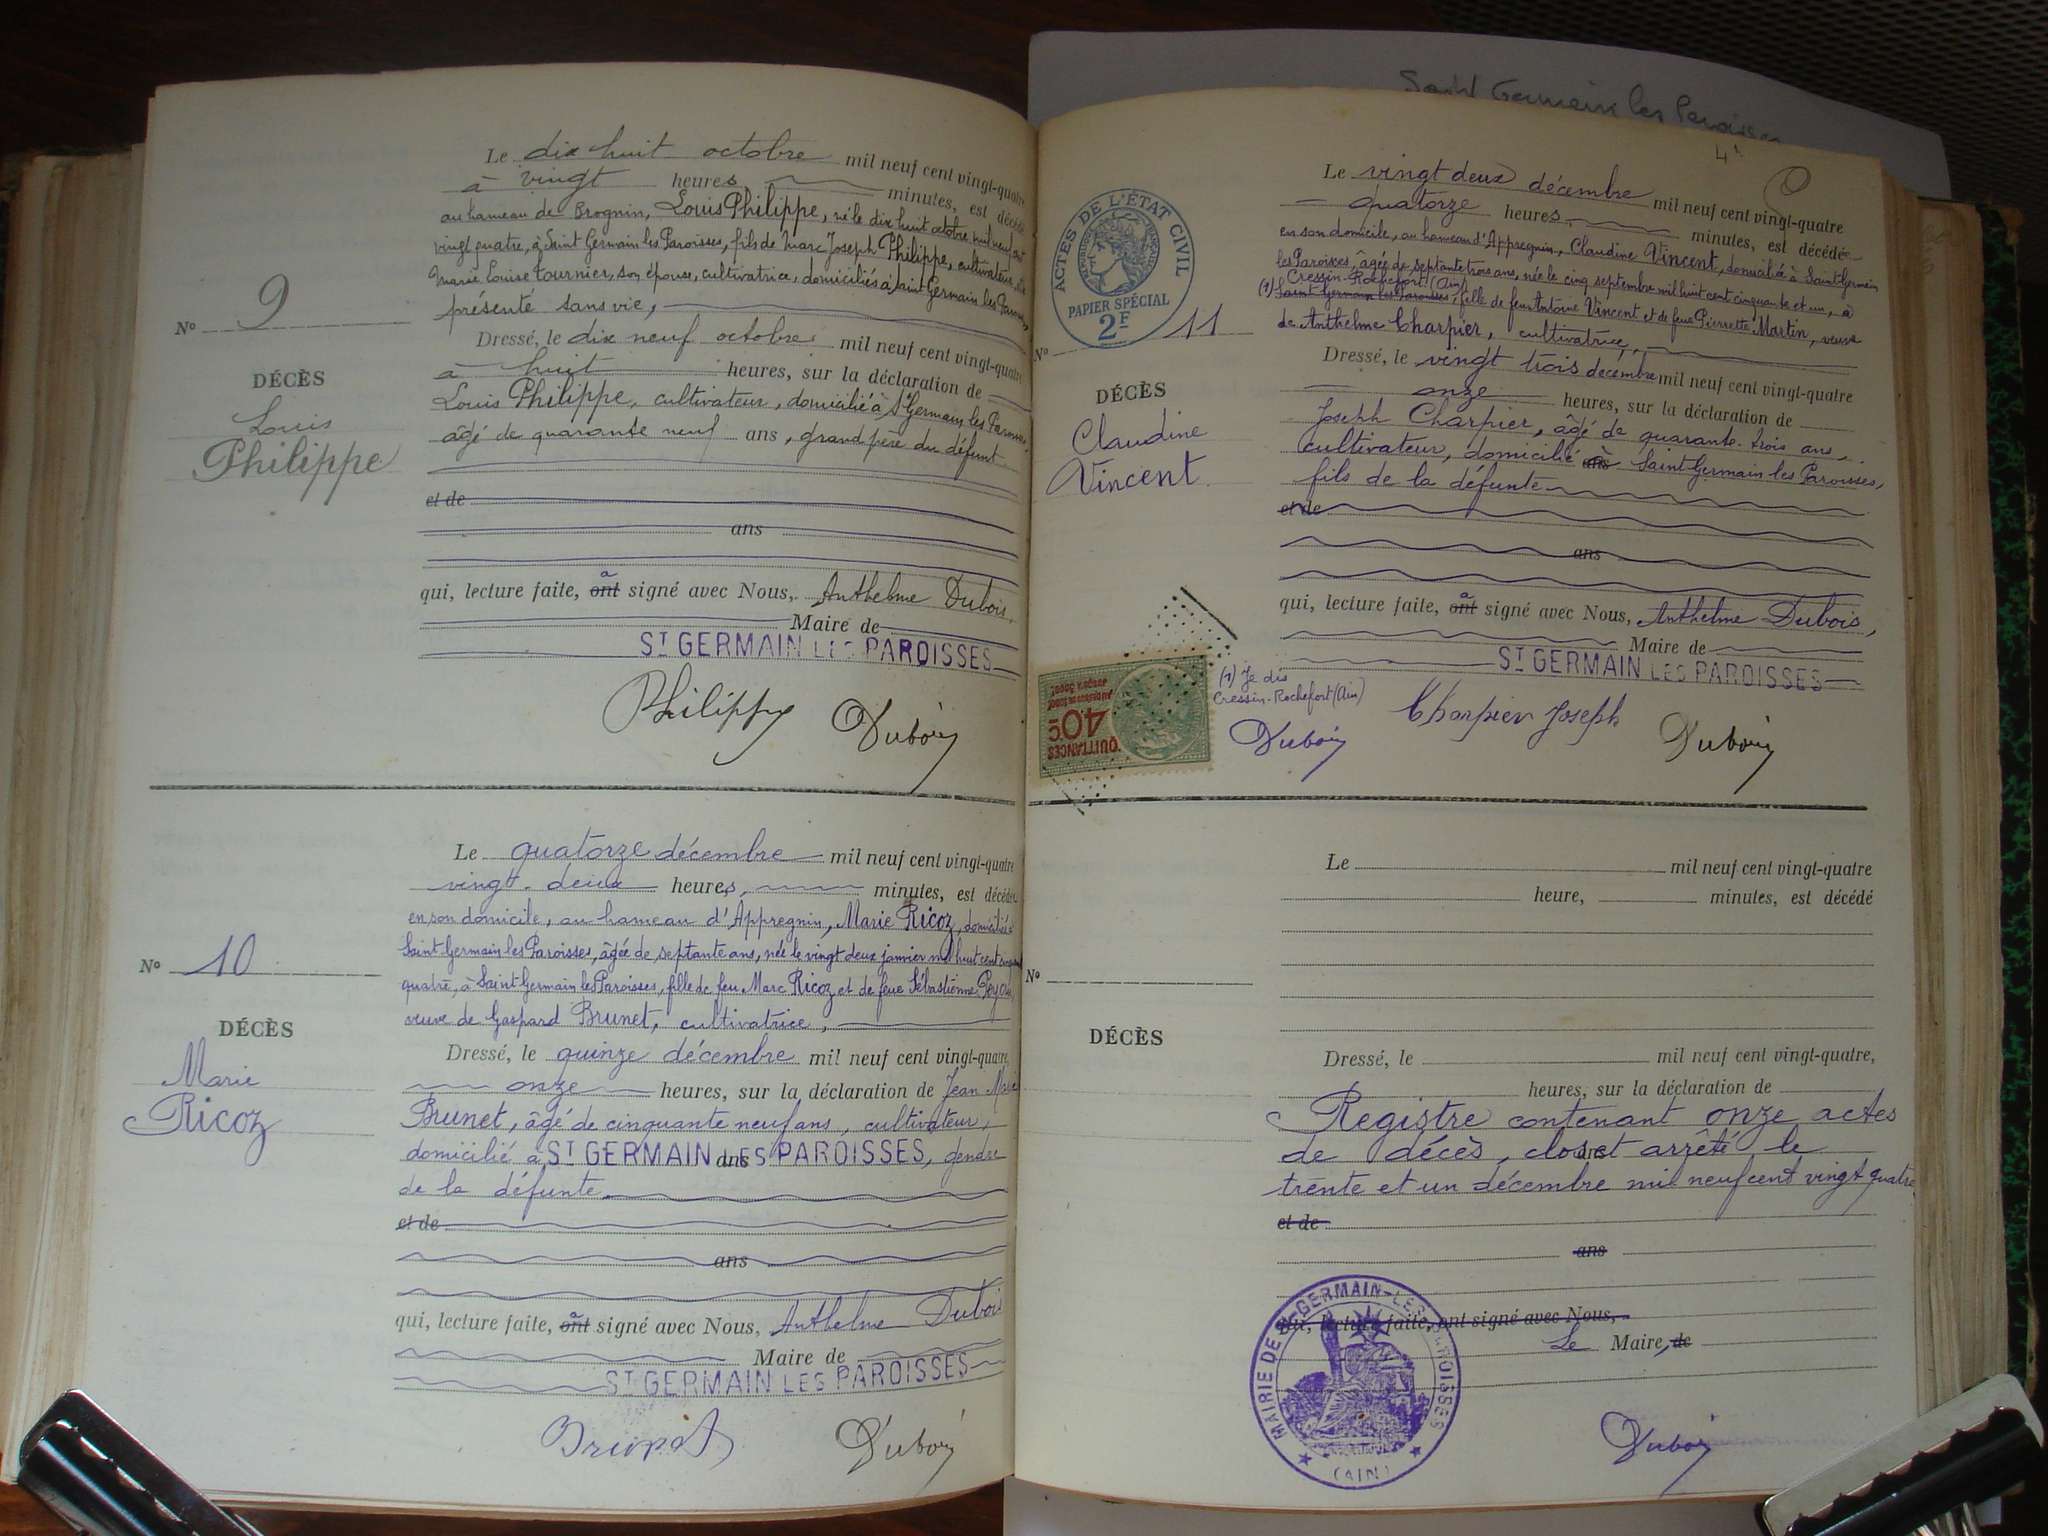 Saint Germain les Paroisses
Le dix huit octobre mil neuf cent vingt-quatre
à vingt heures minutes, est décédé
au hameau de Brognin, Louis Philippe, né le dix huit octobre mil neuf cent
vingt quatre, à Saint Germain les Paroisses, fils de Marc Joseph Philippe, cultivateur, et de
Marie Louise Tournier, son épouse, cultivatrice, domiciliés à Saint Germain les Paroisses,
présenté sans vie,
No 9
Dressé, le dix neuf octobre mil neuf cent vingt-quatre
à huit heures, sur la déclaration de
DÉCÈS
Louis
Philippe
Louis Philippe, cultivateur, domicilié à St Germain les Paroisses
âgé de quarante neuf ans, grand père du défunt
et de
ans
qui, lecture faite, ont a signé avec Nous, Anthelme Dubois,
Maire de
ST GERMAIN LES PAROISSES
Philippe Dubois
Le quatorze décembre mil neuf cent vingt-quatre
vingt-deux heures, minutes, est décédée
en son domicile, au hameau d'Appregnin, Marie Ricoz, domiciliée à
Saint Germain les Paroisses, âgée de septante ans, née le vingt deux janvier mil huit cent cinquante
No 10
quatre, à Saint Germain les Paroisses, fille de feu Marc Ricoz et de feue Sébastienne
veuve de Gaspard Brunet, cultivatrice,
DÉCÈS
Marie
Ricoz
Dressé, le quinze décembre mil neuf cent vingt-quatre,
onze heures, sur la déclaration de Jean Marie
Brunet, âgé de cinquante neuf ans, cultivateur,
domicilié à ST GERMAIN LES PAROISSES, gendre
ans
de la défunte
et de
ans
qui, lecture faite, ont a signé avec Nous, Anthelme Dubois
Maire de
ST GERMAIN LES PAROISSES
Dubois
4
ACTES DE L'ÉTAT CIVIL
RÉPUBLIQUE FRANÇAISE
PAPIER SPÉCIAL
2F
Le vingt deux décembre mil neuf cent vingt-quatre
quatorze heures, minutes, est décédée
en son domicile, au hameau d'Appregnin, Claudine Vincent, domiciliée à Saint Germain
les Paroisses, âgée de septante trois ans, née le cinq septembre mil huit cent cinquante et un, à
Cressin-Rochefort (Ain)
(1) Saint Germain les Paroisses, fille de feu Antoine Vincent et de feue Pierrette Martin, veuve
de Anthelme Charpier, cultivatrice,
No 11
Dressé, le vingt trois décembre mil neuf cent vingt-quatre
onze heures, sur la déclaration de
DÉCÈS
Claudine
Vincent
Joseph Charpier, âgé de quarante-trois ans,
cultivateur, domicilié à Saint Germain les Paroisses,
fils de la défunte
et de
ans
qui, lecture faite, ont a signé avec Nous, Anthelme Dubois,
Maire de
ST GERMAIN LES PAROISSES
QUITTANCES
40c
(1) Je dis
Cressin-Rochefort (Ain)
Dubois
Charpier Joseph Dubois
Le mil neuf cent vingt-quatre
heure, minutes, est décédé
No
DÉCÈS
Dressé, le mil neuf cent vingt-quatre,
heures, sur la déclaration de
Registre contenant onze actes
de décès, clos et arrêté le
trente et un décembre mil neuf cent vingt quatre
et de
ans
qui, lecture faite, ont signé avec Nous,
Le Maire, de
MAIRIE DE ST GERMAIN-LES-PAROISSES
(AIN)
Dubois